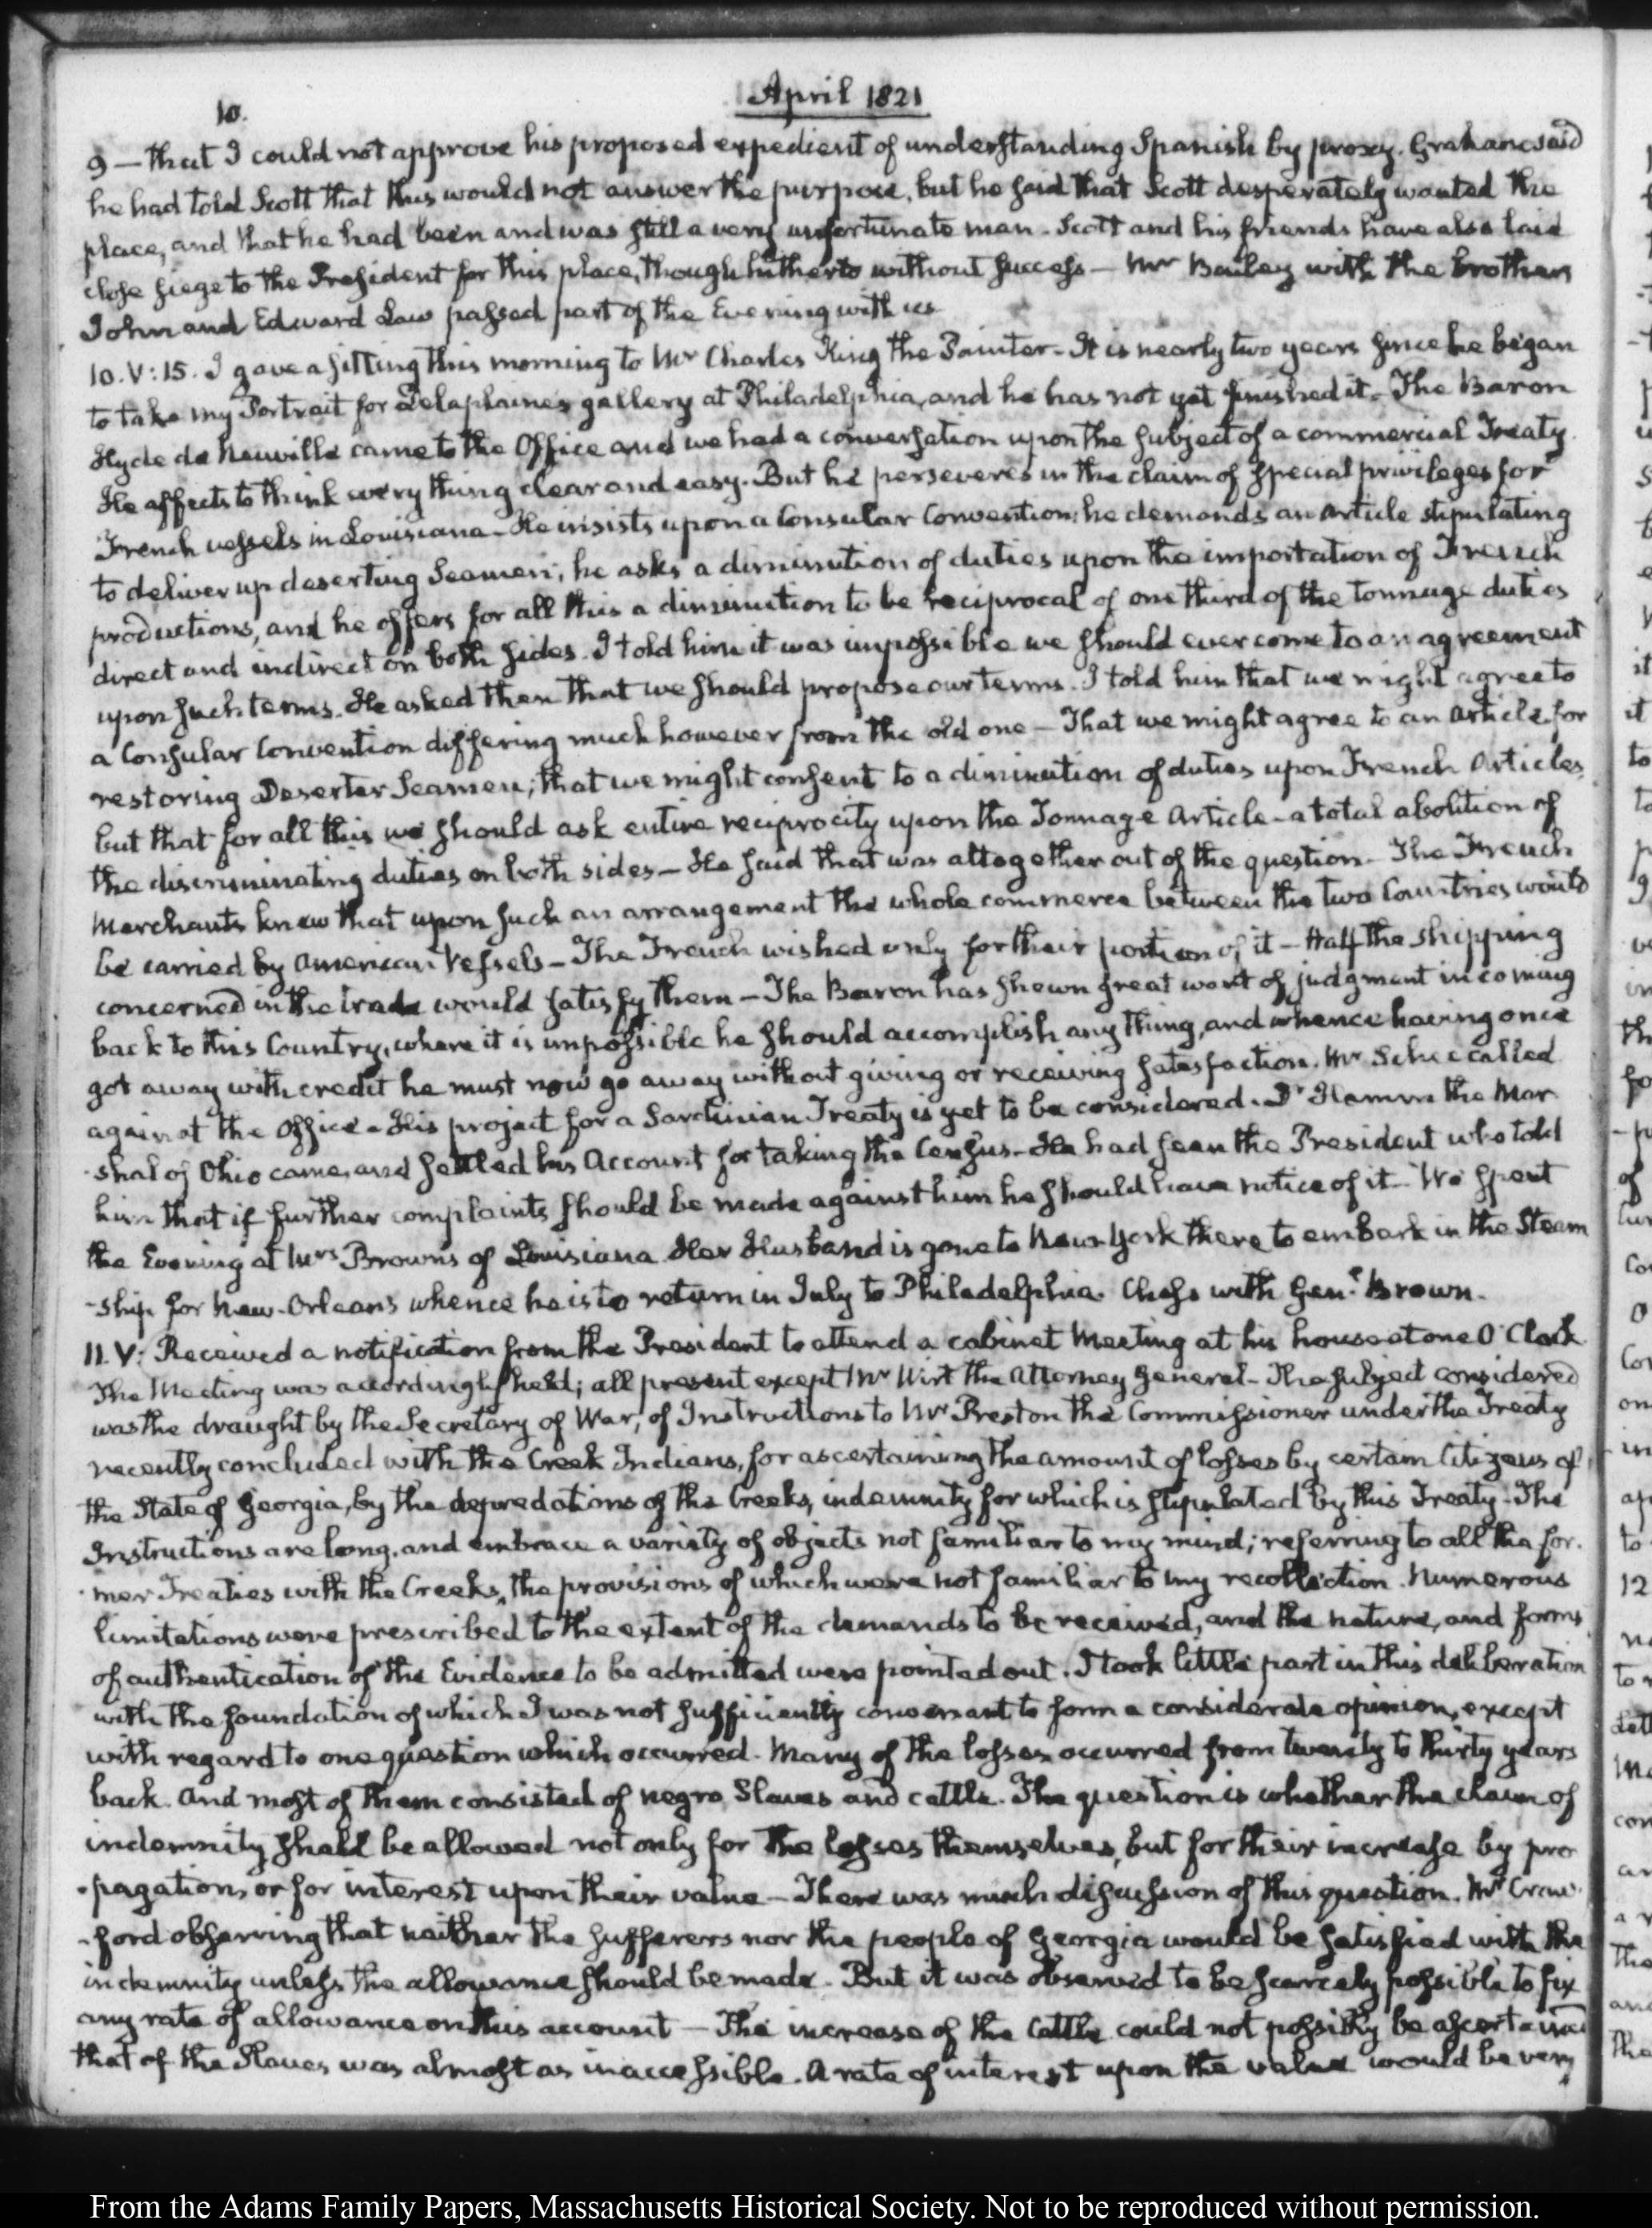 April 1821
10.
9 — that I could not approve his proposed expedient of understanding Spanish by proxy. Graham said
he had told Scott that this would not answer the purpose, but he said that Scott desperately wanted the
place, and that he had been and was still a very unfortunate man. Scott and his friends have also laid
close siege to the President for this place, though hitherto without success — Mr Bailey with the brothers
John and Edward Law passed part of the Evening with us
10. V: 15. I gave a sitting this morning to Mr Charles King the Painter. It is nearly two years since he began
to take my Portrait for Delaplaine's gallery at Philadelphia, and he has not yet finished it. The Baron
Hyde de Neuville came to the Office and we had a conversation upon the subject of a commercial Treaty.
He affects to think every thing clear and easy. But he perseveres in the claim of special privileges for
French vessels in Louisiana. He insists upon a Consular Convention; he demands an article stipulating
to deliver up deserting Seamen; he asks a diminution of duties upon the importation of French
productions, and he offers for all this a diminution to be reciprocal of one third of the tonnage duties
direct and indirect on both sides. I told him it was impossible we should ever come to an agreement
upon such terms. He asked then that we should propose our terms. I told him that we might agree to
a Consular Convention differing much however from the old one — That we might agree to an article for
restoring Deserter Seamen; that we might consent to a diminution of duties upon French Articles,
but that for all this we should ask entire reciprocity upon the Tonnage Article - a total abolition of
the discriminating duties on both sides — He said that was altogether out of the question - The French
Merchants knew that upon such an arrangement the whole commerce between the two Countries would
be carried by American Vessels — The French wished only for their portion of it — Half the shipping
concerned in the trade would satisfy them — The Baron has shewn great want of judgment in coming
back to this Country, where it is impossible he should accomplish any thing, and whence having once
got away with credit he must now go away without giving or receiving satisfaction. Mr called
again at the Office. His project for a Sardinian Treaty is yet to be considered. Dr Hamm the Mar
-shal of Ohio came, and settled his Account for taking the Census. He had seen the President who told
him that if further complaints should be made against him he should have notice of it. We spent
the Evening at Mrs Brown's of Louisiana. Her Husband is gone to New-York there to embark in the Steam
-ship for New-Orleans whence he is to return in July to Philadelphia. Chess with Genl. Brown.
11. V: Received a notification from the President to attend a cabinet Meeting at his house at one O'Clock.
The Meeting was accordingly held; all present except Mr Wirt the Attorney General - The subject considered
was the draught by the Secretary of War, of Instructions to Mr Preston the Commissioner under the Treaty
recently concluded with the Creek Indians, for ascertaining the amount of losses by certain Citizens of
the State of Georgia, by the depredations of the Creeks, indemnity for which is stipulated by this Treaty. The
Instructions are long, and embrace a variety of objects not familiar to my mind; referring to all the for-
mer Treaties with the Creeks, the provisions of which were not familiar to my recollection. Numerous
limitations were prescribed to the extent of the demands to be received, and the nature, and forms
of authentication of the Evidence to be admitted were pointed out. I took little part in this deliberation
with the foundation of which I was not sufficiently conversant to form a considerate opinion, except
with regard to one question which occurred. Many of the losses occurred from twenty to thirty years
back. And most of them consisted of negro Slaves and cattle. The question is whether the claim of
indemnity shall be allowed not only for the losses themselves, but for their increase by pro
-pagation, or for interest upon their value — There was much discussion of this question. Mr Craw-
-ford observing that neither the sufferers nor the people of Georgia would be satisfied with the
indemnity unless the allowance should be made. But it was observed to be scarcely possible to fix
any rate of allowance on this account — The increase of the Cattle could not possibly be ascertained
that of the Slaves was almost as inaccessible. A rate of interest upon the value would be very
From the Adams Family Papers, Massachusetts Historical Society. Not to be reproduced without permission.